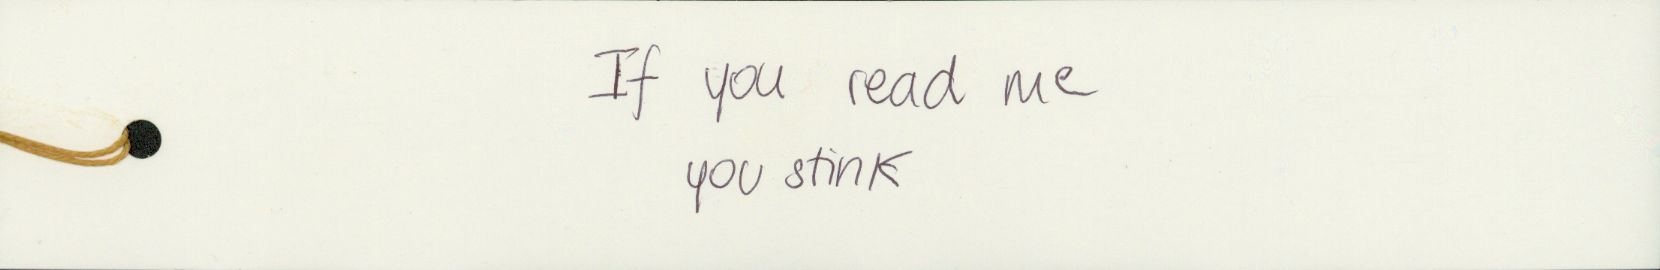 If you read me
you stink